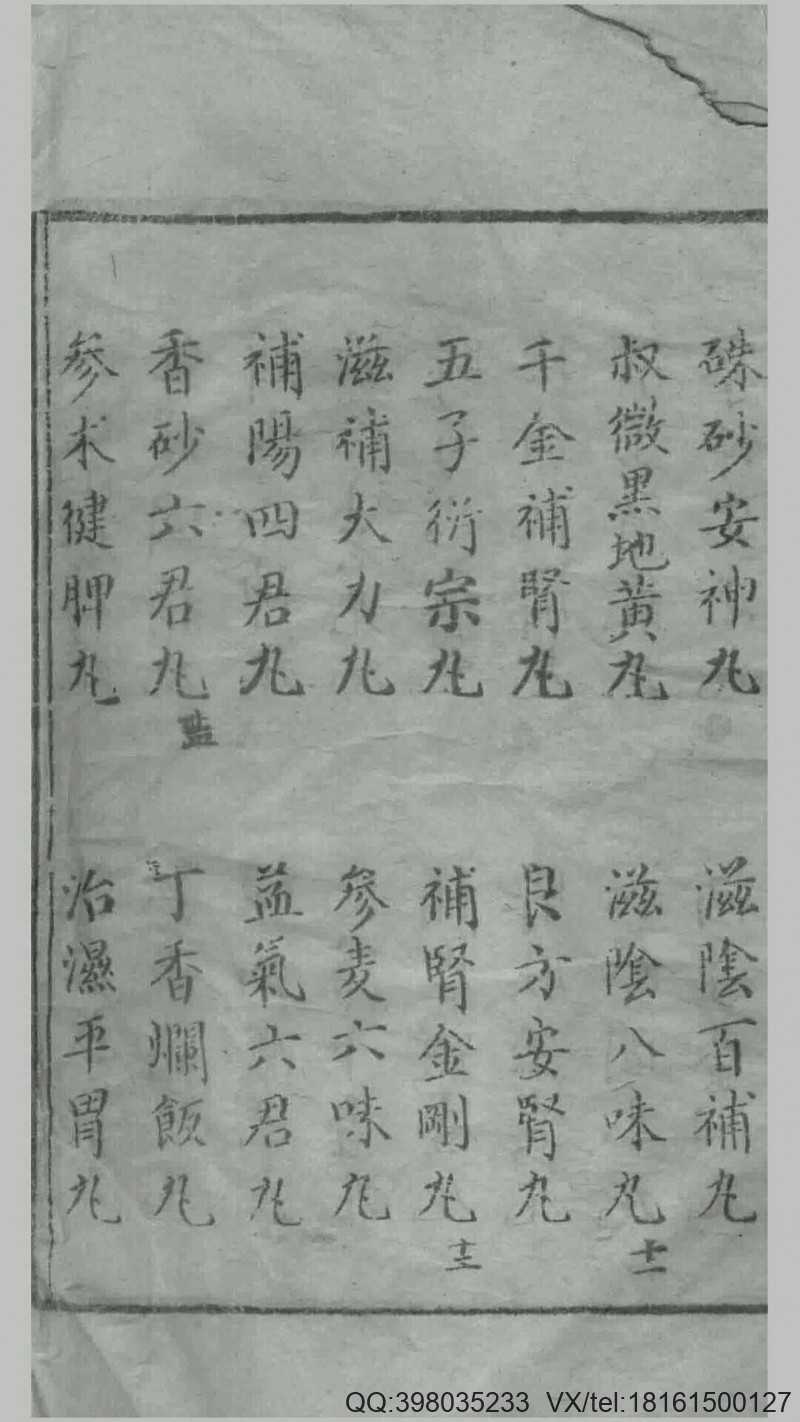 硃砂安神丸
滋陰百補丸
叔微黑地黄丸
滋陰八味丸
十一
千金補腎丸
良方安腎丸
五子衍宗丸
補腎金剛丸
十二
滋補大力丸
參麦六味丸
補陽四君丸
益氣六君丸
香砂六君丸
丁香爛飯丸
參术健脾丸
治濕平胃丸
QQ:398035233 VX/tel:18161500127